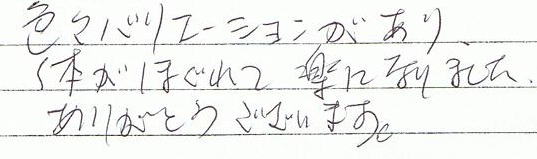 色々バリエーションがあり、
体がほぐれて楽になりました。
ありがとうございます。